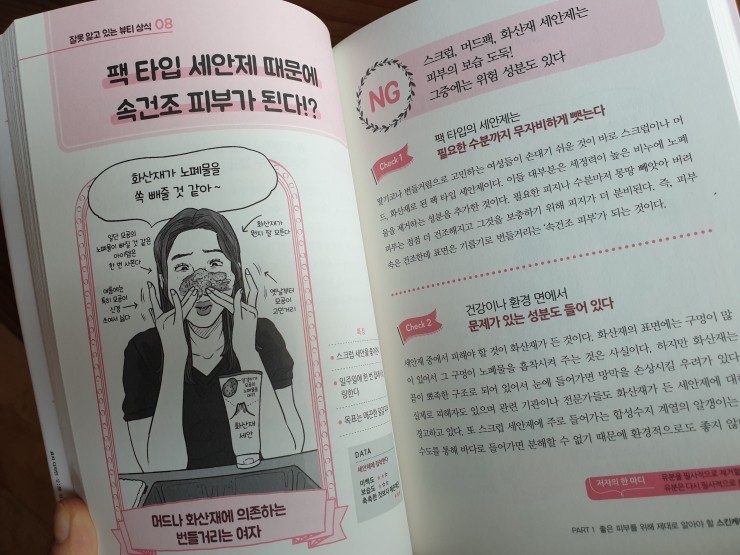 잘못 알고 있는 뷰티 상식 08
팩 타입 세안제 때문에
속건조 피부가 된다!?
화산재가 노폐물을
쏙 빼줄 것 같아~
일단 모공의
노폐물이 빠질 것 같은
아이템은
한 번 사본다
화산재가
뭔지 잘 모른다
여름에는
특히 모공이
신경
쓰여서 싫다
옛날부터
모공이
고민거리
화산재
세안
머드나 화산재에 의존하는
번들거리는 여자
스크럽 세안을
일주일에 한 번
목표는 매끈한
DATA
미백도
보습도
NG
스크럽, 머드팩, 화산재 세안제는
피부의 보습 도둑!
그중에는 위험 성분도 있다
Check 1
팩 타입의 세안제는
필요한 수분까지 무자비하게 뺏는다
딸기코나 번들거림으로 고민하는 여성들이 손대기 쉬운 것이 바로 스크럽이나 머
드, 화산재로 된 팩 타입 세안제이다. 이들 대부분은 세정력이 높은 비누에 노폐
물을 제거하는 성분을 추가한 것이다. 필요한 피지나 수분마저 몽땅 빼앗아 버려
피부는 점점 더 건조해지고 그것을 보충하기 위해 피지가 더 분비된다. 즉, 피부
속은 건조한데 표면은 기름기로 번들거리는 '속건조 피부'가 되는 것이다.
Check 2
건강이나 환경 면에서
문제가 있는 성분도 들어 있다
세안제 중에서 피해야 할 것이 화산재가 든 것이다. 화산재의 표면에는 구멍이 많
이 있어서 그 구멍이 노폐물을 흡착시켜 주는 것은 사실이다. 하지만 화산재는
끝이 뾰족한 구조로 되어 있어서 눈에 들어가면 망막을 손상시킬 우려가 있다
실제로 피해자도 있으며 관련 기관이나 전문가들도 화산재가 든 세안제에 대해
경고하고 있다. 또 스크럽 세안제에 주로 들어가는 합성수지 계열의 알갱이는
수도를 통해 바다로 들어가면 분해할 수 없기 때문에 환경적으로도 좋지 않
저자의 한 마디
유분을 필사적으로 제거할
유분은 다시 필사적으로
PART 1 좋은 피부를 위해 제대로 알아야 할 스킨케어